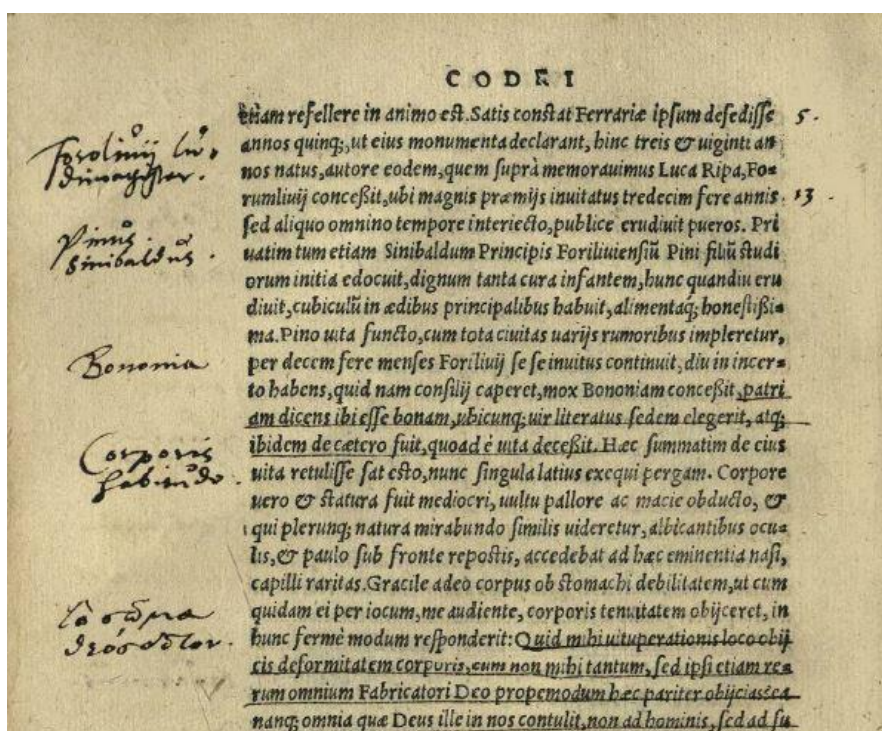 CODRI
etiam refellere in animo est. Satis constat Ferrariæ ipsum desedisse 5.
annos quinq;, ut eius monumenta declarant, hinc treis & uiginti an
nos natus, autore eodem, quem suprà memorauimus Luca Ripa, Fo-
rumliuij conceßit, ubi magnis præmijs inuitatus tredecim fere annis 13.
sed aliquo omnino tempore interiecto, publice erudiuit pueros. Pri
uatim tum etiam Sinibaldum Principis Foriliuiensiũ Pini filiũ studi
orum initia edocuit, dignum tanta cura infantem, hunc quandiu eru
diuit, cubiculũ in ædibus principalibus habuit, alimentaq; honestißi-
ma. Pino uita functo, cum tota ciuitas uarijs rumoribus impleretur,
per decem fere menses Foriliuij se se inuitus continuit, diu in incer-
to habens, quid nam consilij caperet, mox Bononiam conceßit, patri
am dicens ibi esse bonam, ubicunq; uir literatus sedem elegerit, atq;
ibidem de cætero fuit, quoad è uita deceßit. Hæc summatim de eius
uita retulisse sat esto, nunc singula latius exequi pergam. Corpore
uero & statura fuit mediocri, uultu pallore ac macie obducto, &
qui plerunq; natura mirabundo similis uideretur, albicantibus ocu-
lis, & paulo sub fronte repostis, accedebat ad hæc eminentia nasi,
capilli raritas. Gracile adeo corpus ob stomachi debilitatem, ut cum
quidam ei per iocum, me audiente, corporis tenuitatem obijceret, in
hunc fermè modum responderit: Quid mihi uituperationis loco obij
cis deformitatem corporis, cum non mihi tantum, sed ipsi etiam re-
rum omnium Fabricatori Deo propemodum hæc pariter obijcias: ea
nanq; omnia quæ Deus ille in nos contulit, non ad hominis, sed ad su
Forolinij lu-
dimagister.
Pinus
Sinibaldus.
Bononia
Corporis
habitudo.
τὸ σῶμα
θεόσδοτον.